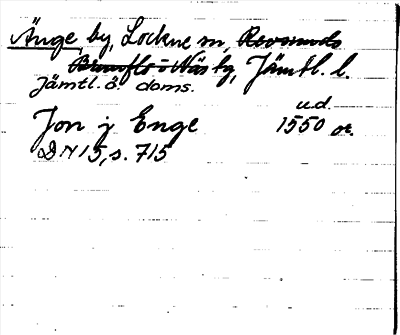 Änge, by, Lockne sn, Revsunds
Brunflo o Näs tg, Jämtl. l.
Jämtl. ö. doms.
u.d.
Jon j Enge 1550 or.
DN 15, s. 715